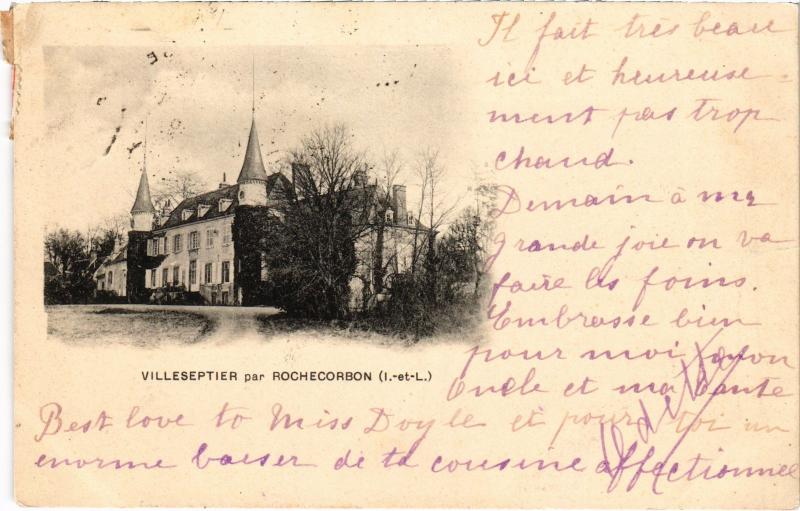 Il fait très beau
ici et heureuse-
ment pas trop
chaud.
Demain à ma
grande joie on va
faire les foins.
Embrasse bien
pour moi mon
Oncle et ma tante
VILLESEPTIER par ROCHECORBON (I.-et-L.)
Best love to Miss Doyle et pour toi un
enorme baiser de ta cousine affectionnée